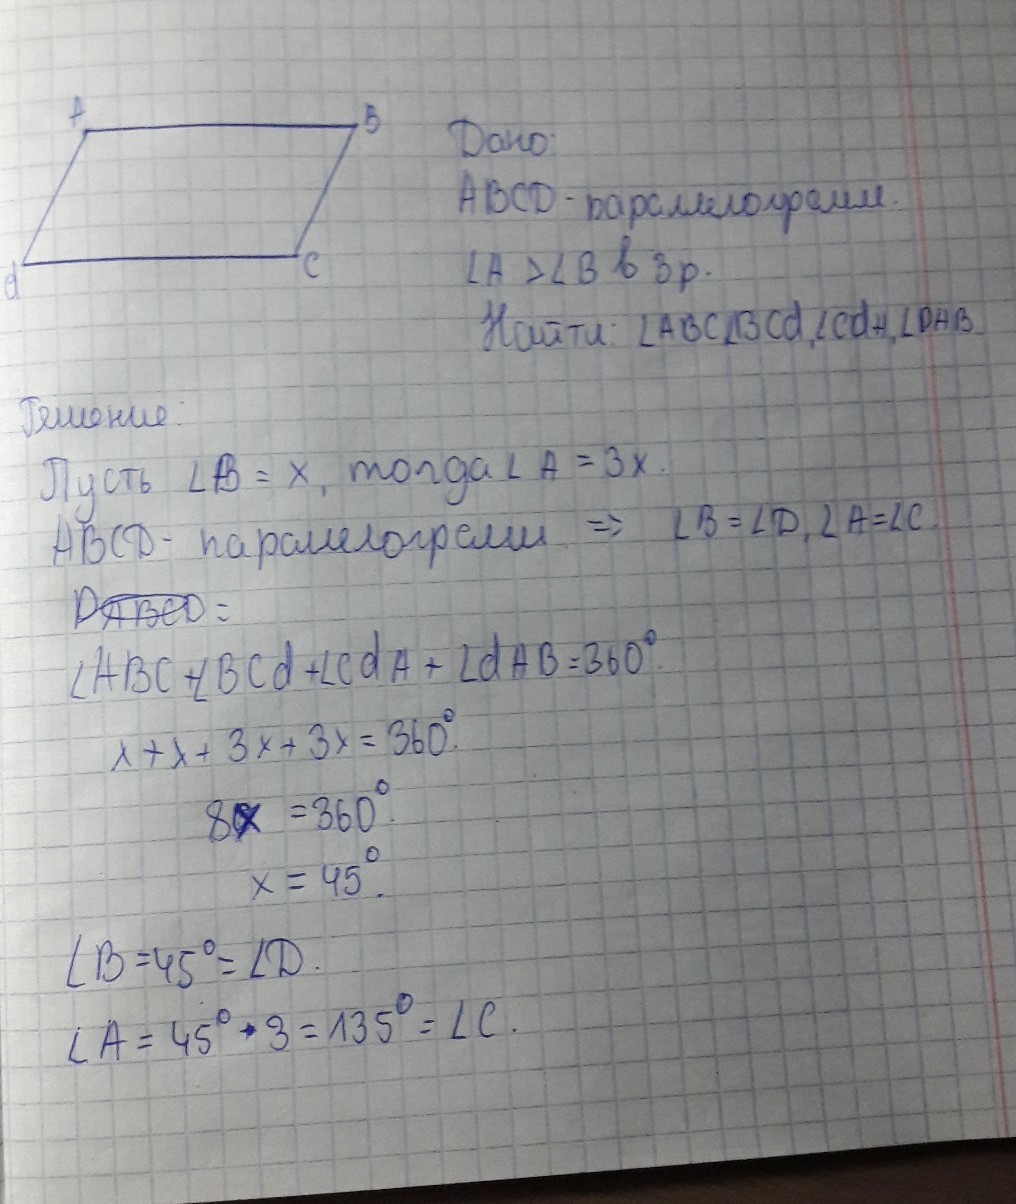 A B
d C
Дано:
ABCD - параллелограмм.
∠A > ∠B в 3 р.
Найти: ∠ABC, ∠BCd, ∠CdA, ∠DAB
Решение:
Пусть ∠B = x, тогда ∠A = 3x.
ABCD - параллелограмм => ∠B = ∠D, ∠A = ∠C
∠ABC + ∠BCd + ∠CdA + ∠dAB = 360°.
x + x + 3x + 3x = 360°.
8x = 360°.
x = 45°.
∠B = 45° = ∠D.
∠A = 45° · 3 = 135° = ∠C.